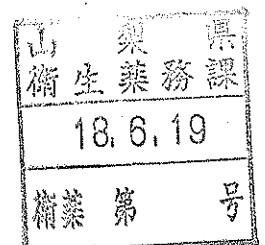 山梨県
衛生薬務課
18.6.19
衛薬第 号